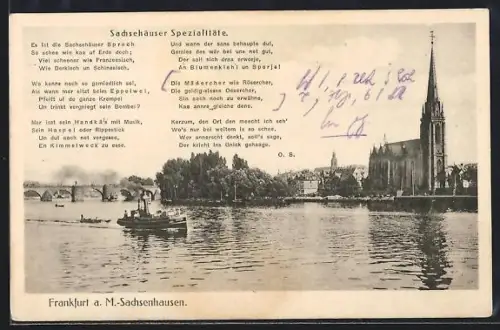 Sachsehäuser Spezialitäte.
Es ist die Sachsehäuser Sproch
So schee wie kaa uf Erde doch;
Viel scheener wie Franzeesisch,
Wie Denkisch un Schineesisch,
Wo kenne noch so gemietlich sei,
Als wann mer sitzt beim Eppelwei,
Pfeift uf de ganze Krempel
Un trinkt vergniegt sein Bembel?
Mer isst sein Handkä's mit Musik,
Sein Haspel oder Rippestick
Un dut aach net vergesse,
Es Kimmelweck zu esse.
Und wann der aans behaupte dut,
Gemies des wär bei uns net gut,
Der soll sich dran erweeje,
An Blumenkehl un Sparjel
Die Mädercher wie Rösercher,
Die goldig-sieese Oosercher,
Sin aach noch zu erwähne,
Kaa annre gleiche dene.
Korzum, den Ort den meecht ich seh'
Wo's nur bei weitem is so schee.
Wer annerscht denkt, soll's sage,
Der krieht ins Gnick gehaage.
O. S.
Frankfurt a. M.-Sachsenhausen.